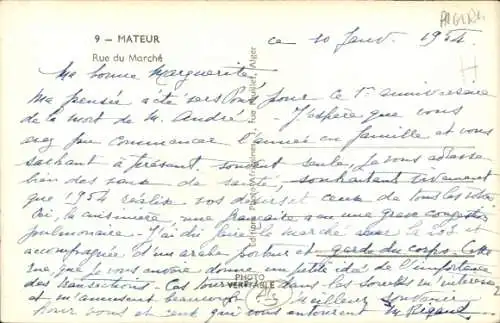 9 — MATEUR
Rue du Marché
ce 10 Janv. 1954
Ma bonne Marguerite
Ma pensée a été vers Vous pour ce 1er anniversaire
de la mort de M. André. J'espère que vous
avez pu commencer l'année en famille et vous
sachant à présent souvent seule, je vous adresse
bien des vœux de santé, souhaitant vivement
que 1954 réalise vos désirs et ceux de tous les vôtres
Ici, la cuisinière, une française a eu une grave congestion
pulmonaire - J'ai dû faire le marché avec le
accompagnée d'un arabe porteur et garde du corps. Cette
rue, que je vous envoie donne une petite idée de l'importance
des transactions - Ces dans les m'intéressent
et m'amusent beaucoup. Meilleur Souvenir
pour vous et ceux qui vous entourent M. Rigaud
PHOTO
VÉRITABLE